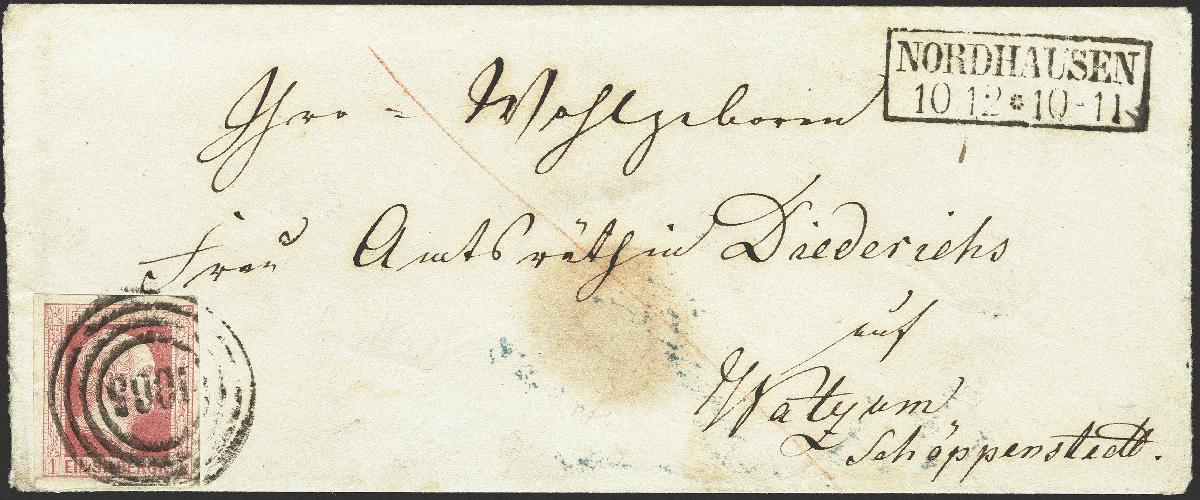 NORDHAUSEN
10 12 * 10-11
Ihro = Wohlgeboren
Frau Amtsräthin Diederichs
auf
Watzum
Schöppenstedt.
1065
1 EIN SILBERGR.